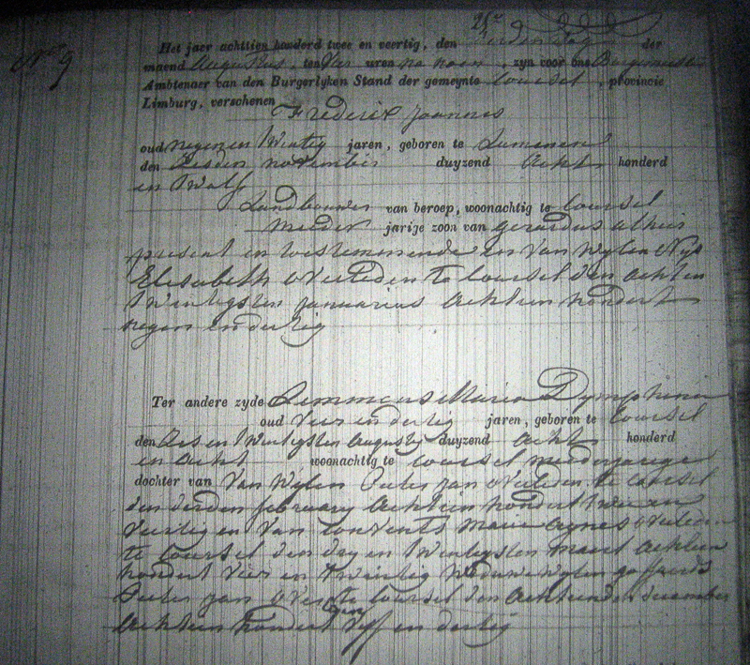 N° 9
Het jaer achttien honderd twee en veertig, den der
maend Augustus, ten vier uren na noon, zyn voor ons Burgemeester
Ambtenaer van den Burgerlyken Stand der gemeynte Coursel, provincie
Limburg, verschenen
Frederix Joannes
oud negen en twintig jaren, geboren te Lummen
den sesden november duyzend acht honderd
en twalf
Landbouwer van beroep, woonachtig te Coursel
meerder jarige zoon van gerardus alhier
present en toestemmende en van wylen Nys
Elisabeth overleden te Coursel den achten
twintigsten januarius achtien hondert
negen en dertig
Ter andere zyde Lemmens Maria Dymphna
oud vier en dertig jaren, geboren te Coursel
den ses en twintigsten Augusty duyzend acht honderd
en acht woonachtig te Coursel meederjarige
dochter van van wylen Peeter jan overleden te Coursel
den derden february achtien hondert twee en
veertig en van Convents Marie Agnes overleden
te Coursel den dry en twintigsten maert achtien
hondert vier en twintig weduwe wylen
Peeter jan overleden te Coursel den achtienden december
achtien hondert vyf en dertig